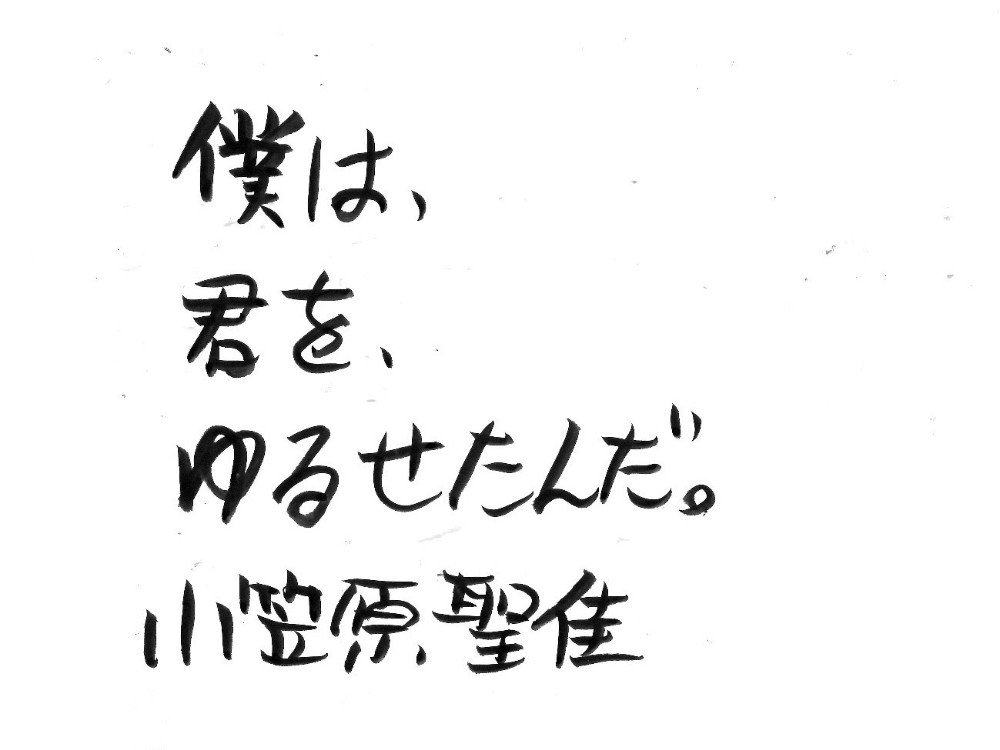 僕は、
君を、
ゆるせたんだ。
小笠原聖佳